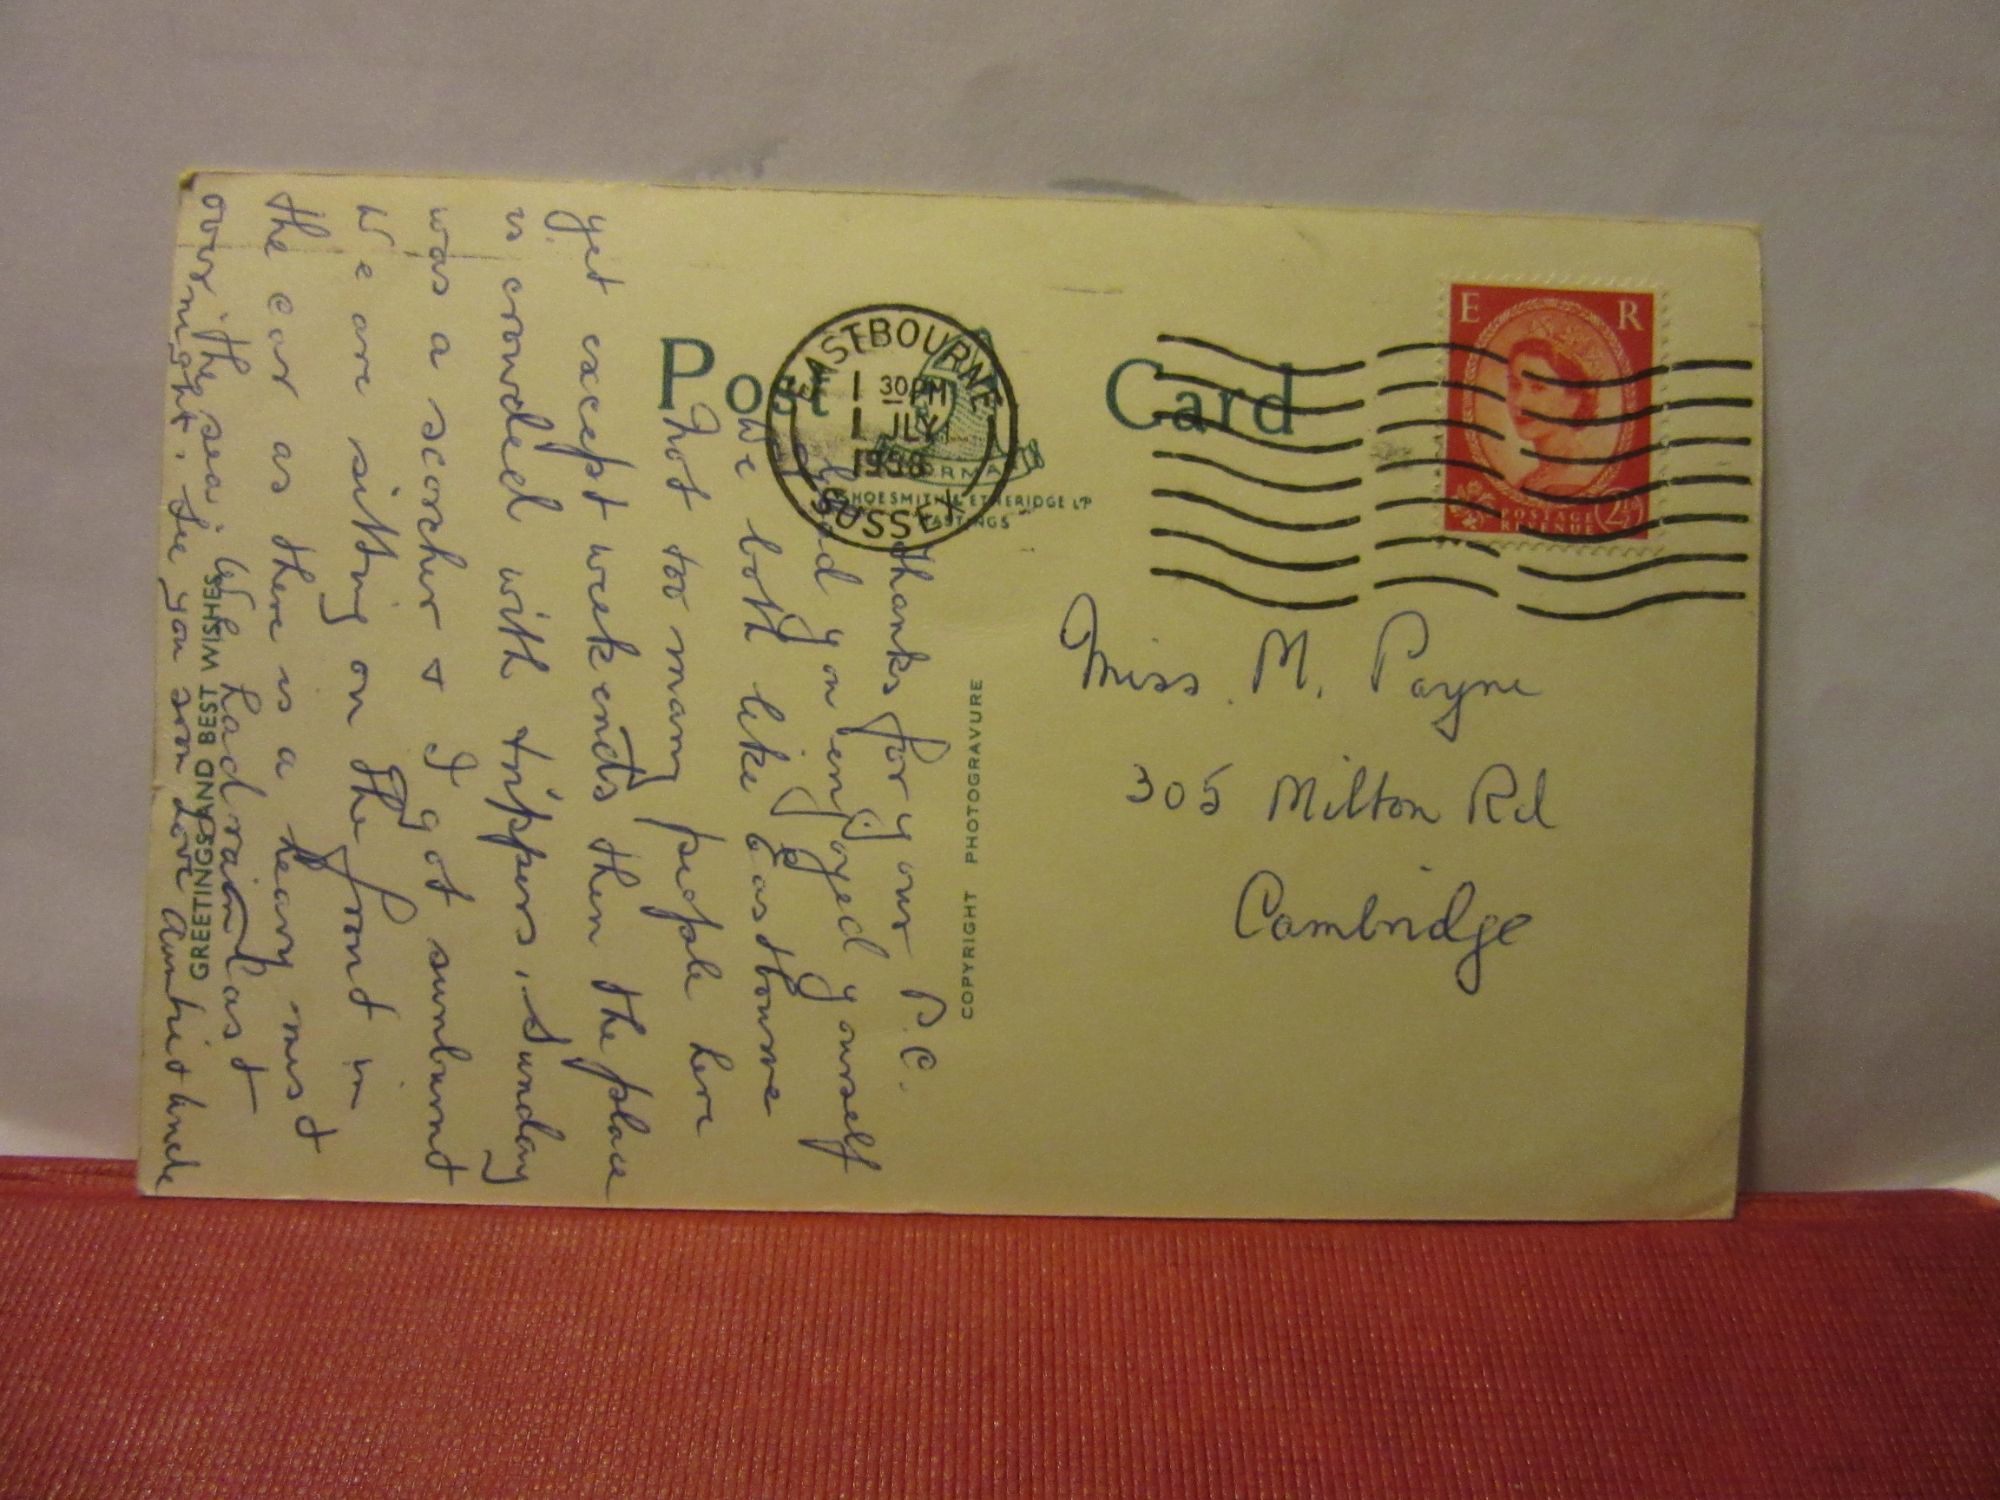 Post Card
EASTBOURNE
1 30 PM
1 JLY
1958
SUSSEX
NORMAN
SHOESMITH & ETHERIDGE LTD
HASTINGS
E R
POSTAGE
REVENUE
2½D
COPYRIGHT PHOTOGRAVURE
GREETINGS AND BEST WISHES
Miss. M. Payne
305 Milton Rd
Cambridge
Thanks for your P.C.
glad you enjoyed yourself
we both like Eastbourne
not too many people here
yet except week ends then the place
is crowded with trippers, Sunday
was a scorcher & I got sunburnt
We are sitting on the front in
the car as there is a heavy mist
over the sea; We had rain last
night. See you soon Love Auntie & Uncle